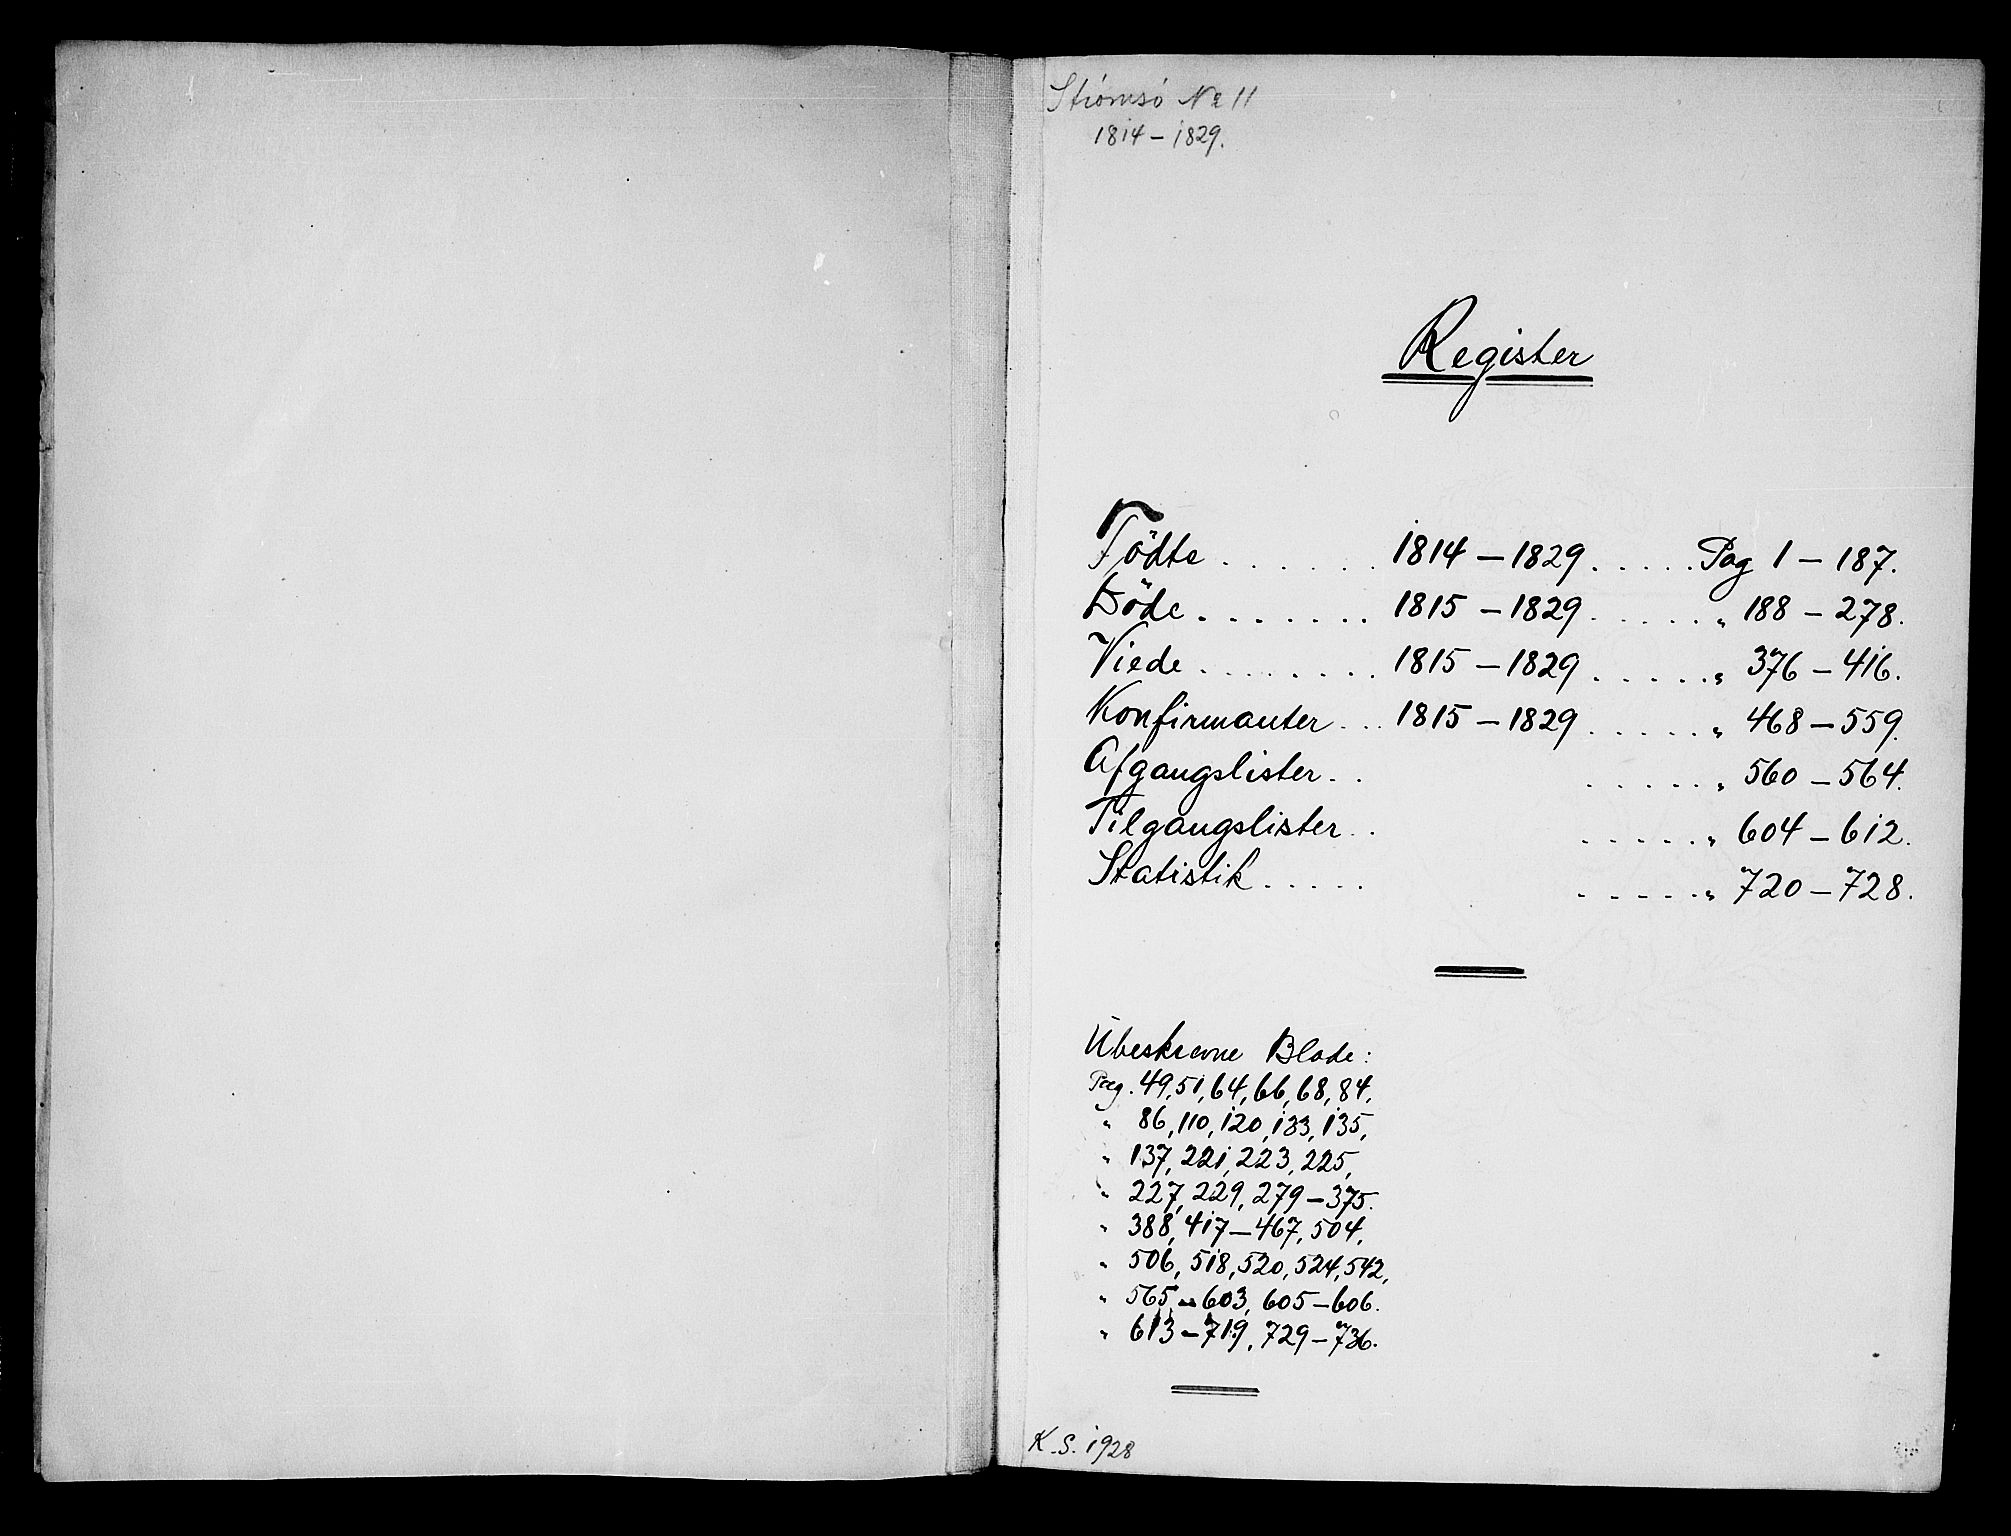 Strömsö No 11
1814 – 1829.
Register
Födte . . . . . . 1814 – 1829 . . . . . Pag 1 – 187.
Döde . . . . . . . 1815 – 1829 . . . . . " 188 – 278.
Viede . . . . . . . . 1815 – 1829 . . . . . " 376 – 416.
Konfirmanter . . . 1815 – 1829 . . . . . " 468 – 559.
Afgangslister . . . . . . . " 560 – 564.
Tilgangslister . . . . . . . " 604 – 612.
Statistik . . . . . . . . . . " 720 – 728.
Ubeskrevne Blade:
Pag. 49, 51, 64, 66, 68, 84,
" 86, 110, 120, 133, 135,
" 137, 221, 223, 225,
" 227, 229, 279 – 375.
" 388, 417 – 467, 504,
" 506, 518, 520, 524, 542,
" 565 – 603, 605 – 606.
" 613 – 719, 729 – 736.
K. S. 1928